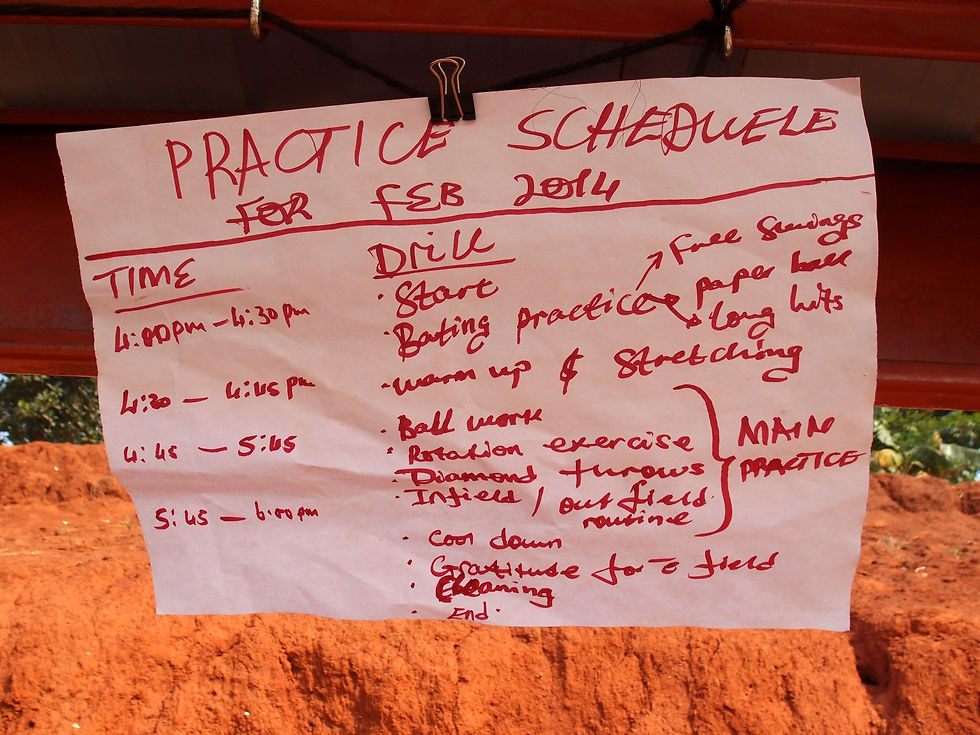 PRACTICE SCHEDUELE
FOR FEB 2014
TIME Drill
4:00pm - 4:30pm · Start
· Bating practice → Free Swings
→ paper ball
→ long hits
4:30 - 4:45 pm · warm up & Stretching
4:45 - 5:45 · Ball work
· Rotation exercise
· Diamond throws
· Infield / outfield
routine
MAIN
PRACTICE
5:45 - 6:00pm · Cool down
· Gratitude for field
· Cleaning
· End.